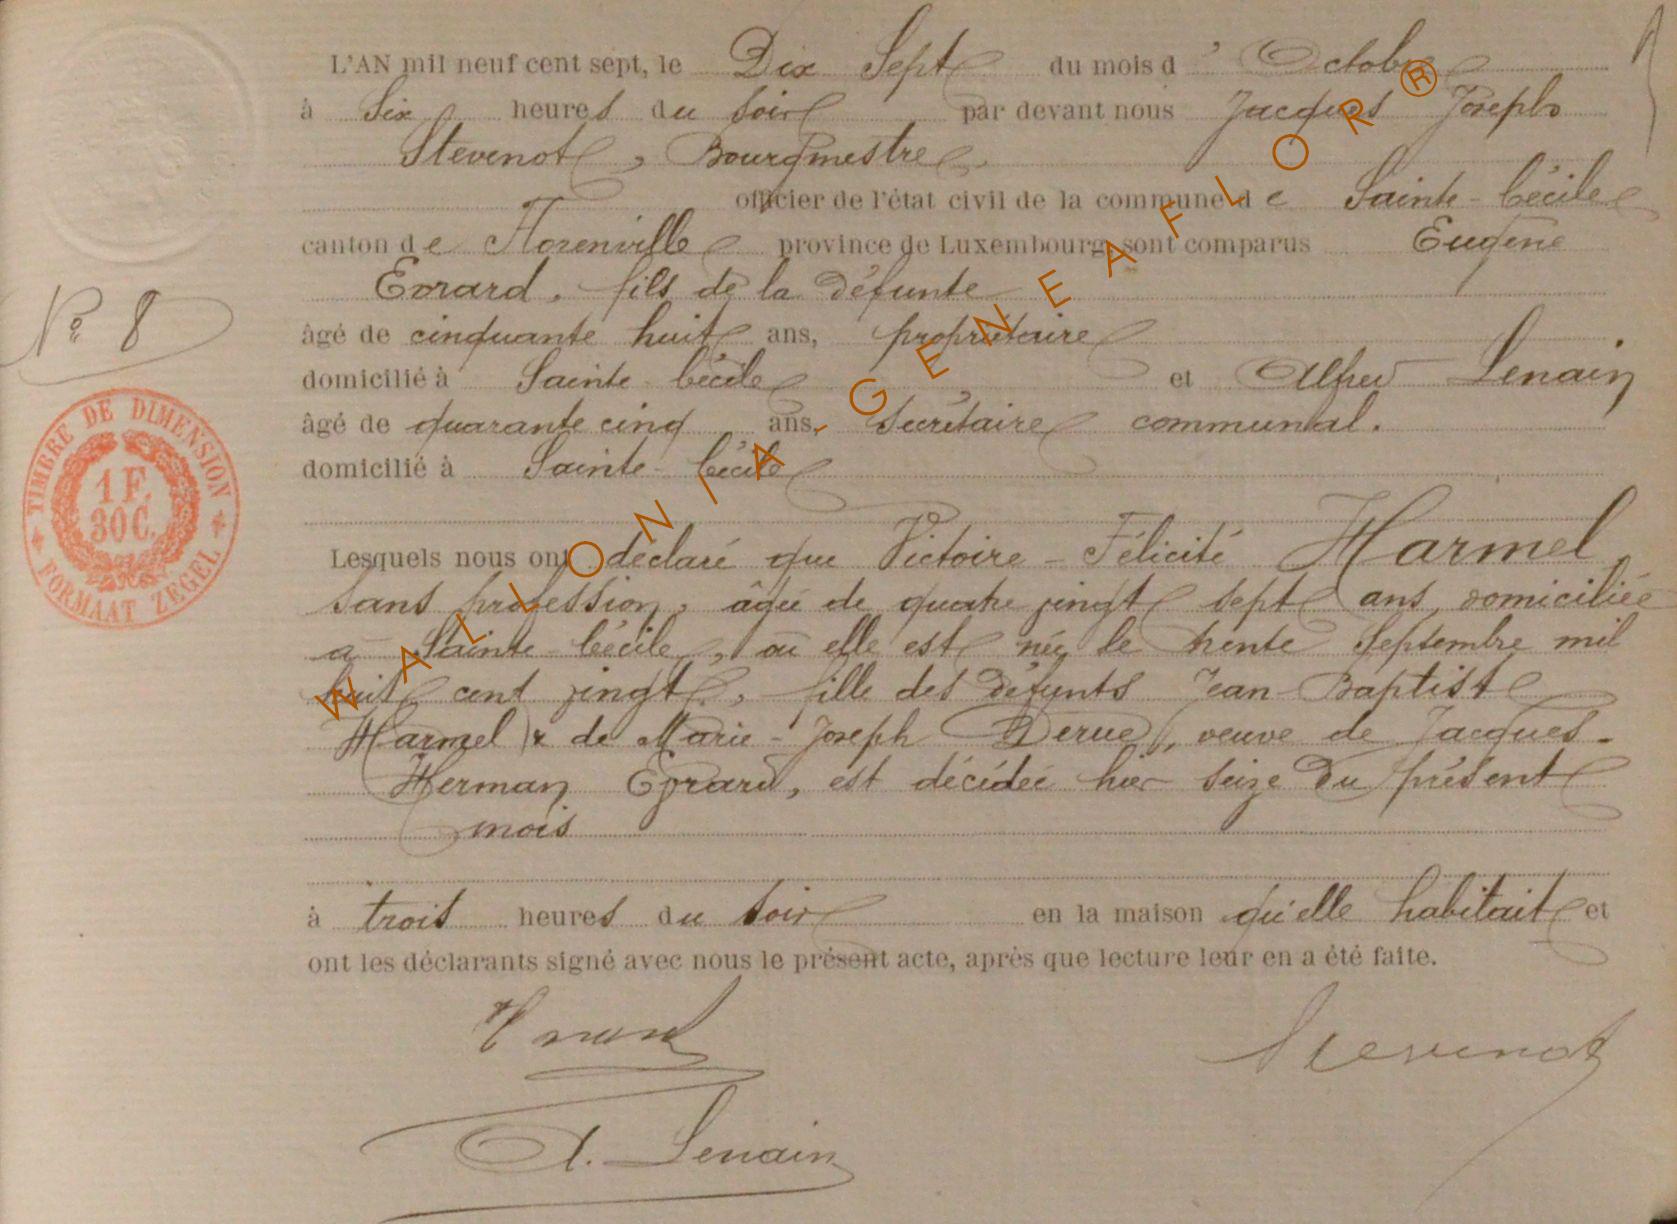 L'AN mil neuf cent sept, le Dix Sept du mois d' Octobre
à Six heures du soir par devant nous Jacques Joseph
Stevenot, Bourgmestre
officier de l'état civil de la commune de Sainte-Cécile
canton de Florenville province de Luxembourg sont comparus Eugène
Evrard, fils de la défunte
N° 8
âgé de cinquante huit ans, propriétaire
domicilié à Sainte Cécile et Alfred Lenain
âgé de quarante cinq ans, Secrétaire communal.
domicilié à Sainte-Cécile
TIMBRE DE DIMENSION
1 F.
30 C.
FORMAAT ZEGEL
Lesquels nous ont déclaré que Victoire-Félicité Harmel
sans profession, âgée de quatre vingt sept ans, domiciliée
à Sainte Cécile, où elle est née le trente Septembre mil
huit cent vingt, fille des défunts Jean-Baptiste
Harmel & de Marie-Joseph Derue, veuve de Jacques-
Herman Evrard, est décédée hier seize du présent
mois
à trois heures du soir en la maison qu'elle habitait et
ont les déclarants signé avec nous le présent acte, après que lecture leur en a été faite.
Stevenot
A. Lenain
WALLONIA-GENEAFLOR®